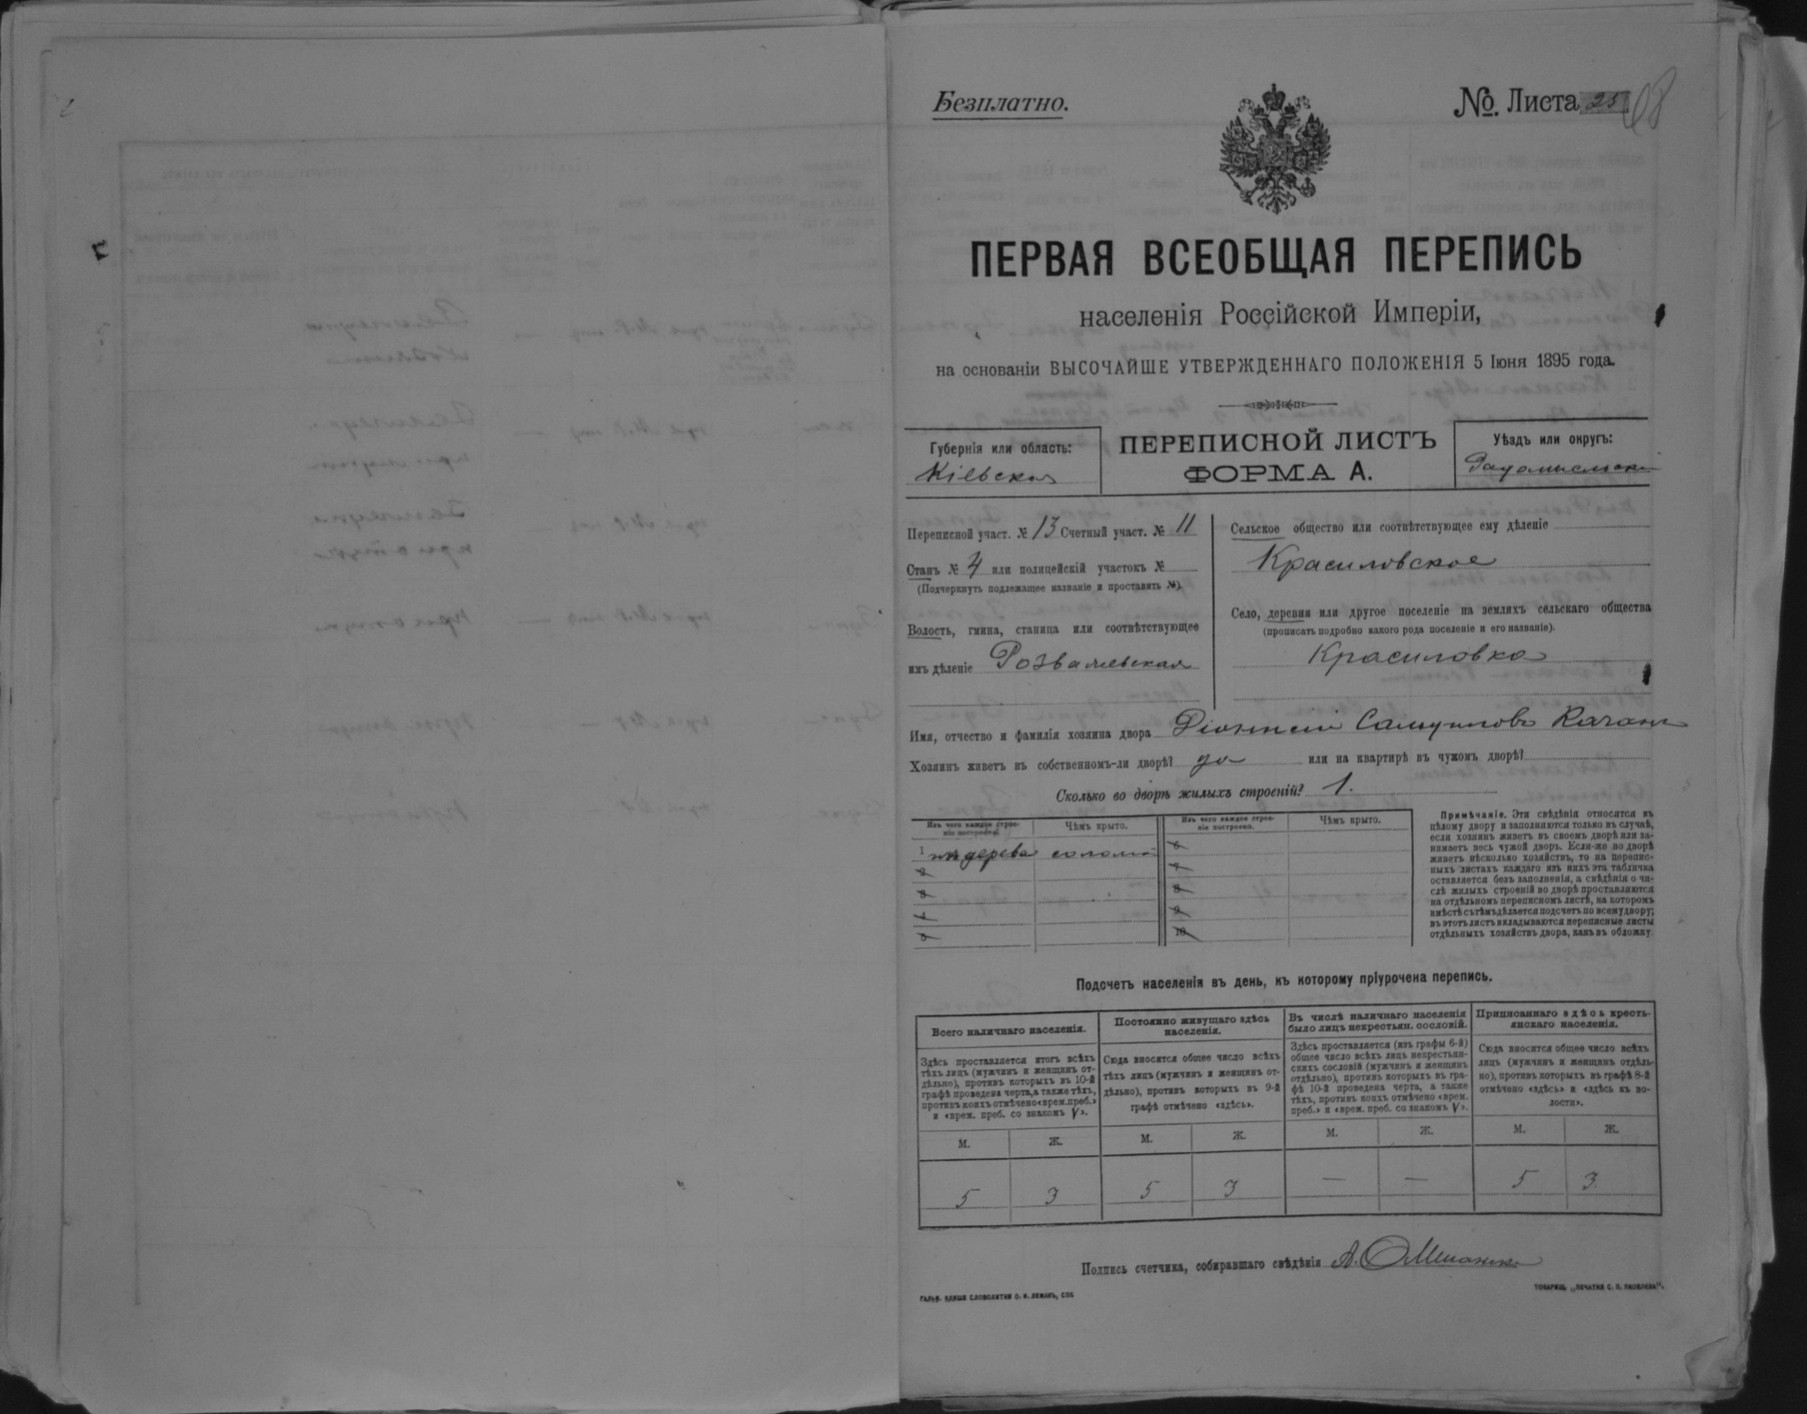 Безплатно.
№. Листа 25
68
ПЕРВАЯ ВСЕОБЩАЯ ПЕРЕПИСЬ
населенія Россійской Имперіи,
на основаніи ВЫСОЧАЙШЕ УТВЕРЖДЕННАГО ПОЛОЖЕНІЯ 5 Іюня 1895 года.
Губернія или область:
Кіевская
ПЕРЕПИСНОЙ ЛИСТЪ
ФОРМА А.
Уѣздъ или округъ:
Радомысльскій
Переписной участ. № 13 Счетный участ. № 11
Станъ № 4 или полицейскій участокъ №
(Подчеркнуть подлежащее названіе и проставить №).
Волость, гмина, станица или соотвѣтствующее
имъ дѣленіе Розважевская
Сельское общество или соотвѣтствующее ему дѣленіе
Красиловское
Село, деревня или другое поселеніе на земляхъ сельскаго общества
(прописать подробно какого рода поселеніе и его названіе).
Красиловка
Имя, отчество и фамилія хозяина двора Діонисій Самуиловъ Качанъ
Хозяинъ живетъ въ собственномъ-ли дворѣ? да или на квартирѣ въ чужомъ дворѣ?
Сколько во дворѣ жилыхъ строеній? 1.
Изъ чего каждое строе-
ніе построено.
Чѣмъ крыто.
Изъ чего каждое строе-
ніе построено.
Чѣмъ крыто.
1 изъ дерева соломой
2
3
4
5
6
7
8
9
10
Примѣчаніе. Эти свѣдѣнія относятся къ
цѣлому двору и заполняются только въ случаѣ,
если хозяинъ живетъ въ своемъ дворѣ или за-
нимаетъ весь чужой дворъ. Если-же во дворѣ
живетъ нѣсколько хозяйствъ, то на перепис-
ныхъ листахъ каждаго изъ нихъ эта табличка
оставляется безъ заполненія, а свѣдѣнія о чи-
слѣ жилыхъ строеній во дворѣ проставляются
на отдѣльномъ переписномъ листѣ, на которомъ
вмѣстѣ съ тѣмъ дѣлается подсчетъ по всему двору;
въ этотъ листъ вкладываются переписные листы
отдѣльныхъ хозяйствъ двора, какъ въ обложку.
Подсчетъ населенія въ день, къ которому пріурочена перепись.
Всего наличнаго населенія.
Здѣсь проставляется итогъ всѣхъ
тѣхъ лицъ (мужчинъ и женщинъ от-
дѣльно), противъ которыхъ въ 10-й
графѣ проведена черта, а также тѣхъ,
противъ коихъ отмѣчено «врем. преб.»
и «врем. преб. со знакомъ V».
Постоянно живущаго здѣсь
населенія.
Сюда вносится общее число всѣхъ
тѣхъ лицъ (мужчинъ и женщинъ от-
дѣльно), противъ которыхъ въ 9-й
графѣ отмѣчено «здѣсь».
Въ числѣ наличнаго населенія
было лицъ некрестьян. сословій.
Здѣсь проставляется (изъ графы 6-й)
общее число всѣхъ лицъ некрестьян-
скихъ сословій (мужчинъ и женщинъ
отдѣльно), противъ которыхъ въ гра-
фѣ 10-й проведена черта, а также
тѣхъ, противъ коихъ отмѣчено «врем.
преб.» и «врем. преб. со знакомъ V».
Приписаннаго здѣсь кресть-
янскаго населенія.
Сюда вносится общее число всѣхъ
лицъ (мужчинъ и женщинъ отдѣль-
но), противъ которыхъ въ графѣ 8-й
отмѣчено «здѣсь» и «здѣсь къ во-
лости».
М. Ж. М. Ж. М. Ж. М. Ж.
5 3 5 3 — — 5 3
Подпись счетчика, собиравшаго свѣдѣнія А.